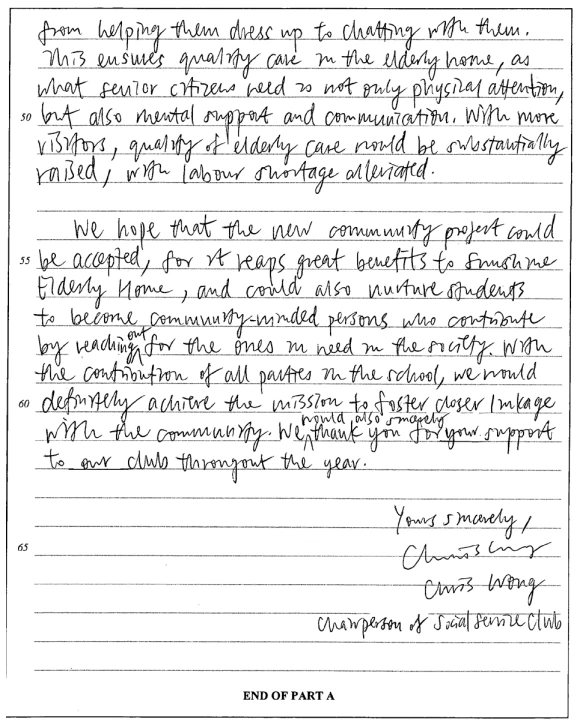 from helping them dress up to chatting with them.
This ensures quality care in the elderly home, as
what senior citizens need is not only physical attention,
50 but also mental support and communication. With more
visitors, quality of elderly care would be substantially
raised, with labour shortage alleviated.
We hope that the new community project could
55 be accepted, for it reaps great benefits to Sunshine
Elderly Home, and could also nurture students
to become community-minded persons who contribute
by reaching out for the ones in need in the society. With
the contribution of all parties in the school, we would
60 definitely achieve the mission to foster closer linkage
with the community. We would also sincerely thank you for your support
to our club throughout the year.
Yours sincerely,
65 Chris Wong
Chris Wong
Chairperson of Social Service Club
END OF PART A